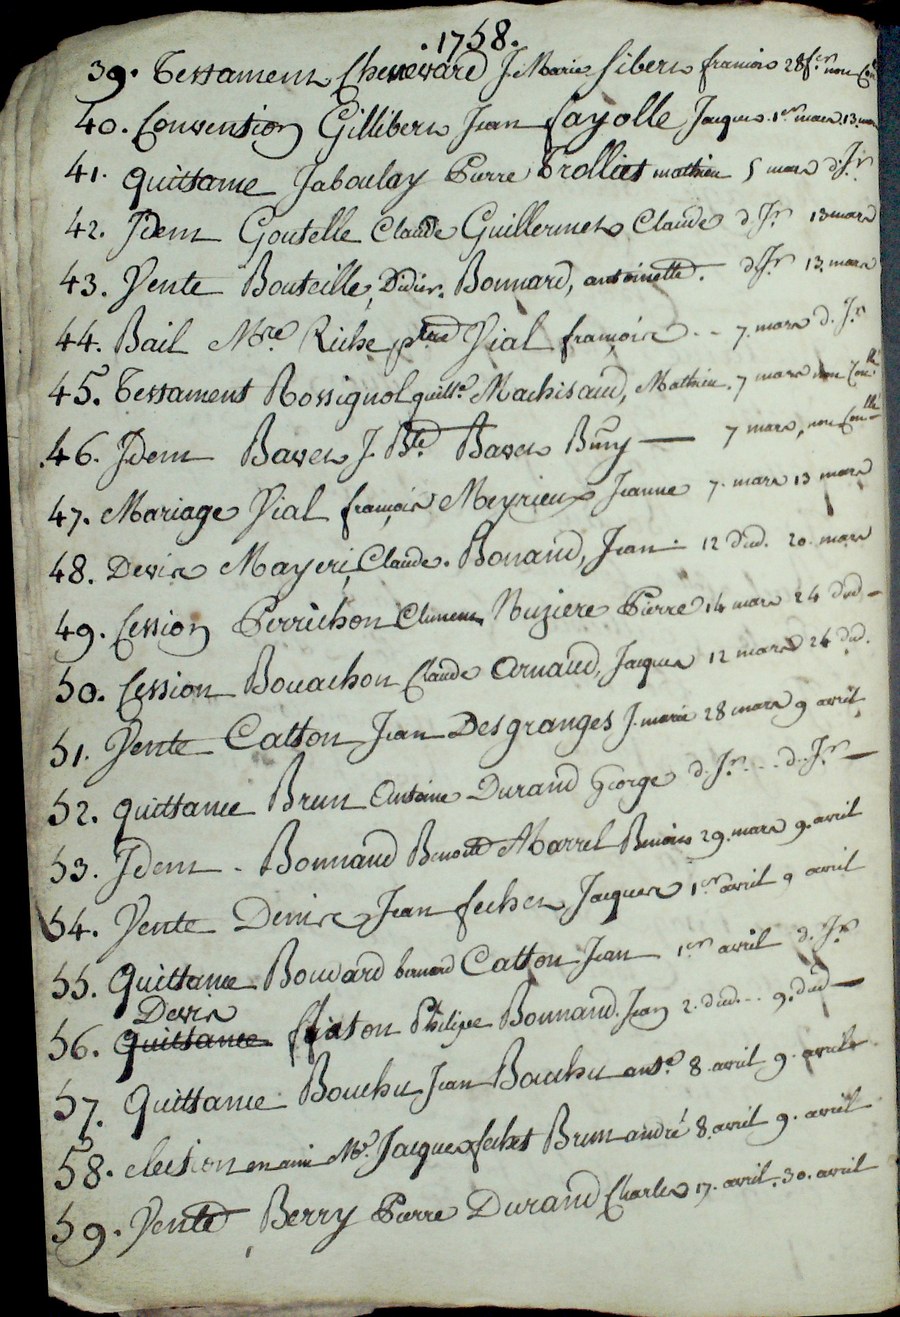 .1758.
39. Testament Chenevard J. Marie Sibert francois 28 fer. non
40. Convention Gillibert Jean fayolle Jacques. 1er mars. 13. mars
41. quittance Jaboulay Pierre Trolliet mathieu 5 mars d. Jr.
42. Idem Goutelle Claude Guillermet Claude d. Jr. 13 mars
43. Vente Bouteille, Didier. Bonnard, antoinette. d. Jr. 13. mars
44. Bail Mre. Riche Vial françois .. 7. mars d. Jr.
45. Testament Rossignol guille. Machisaud, Mathieu. 7 mars non Conllé
46. Idem Bavet J. Bte. Bavet Buny — 7 mars, non Conllé
47. Mariage Vial françois Meyrieux Jeanne 7. mars 13 mars
48. Devis Mayeri, Claude. Bonand, Jean. 12 dud. 20. mars
49. Cession Perrichon Clement Nuziere Pierre 14 mars 24 dud —
50. Cession Bouachon Claude Arnaud, Jacques 12 mars 24 dud.
51. Vente Catton Jean Desgranges J. marie 28 mars 9 avril
52. quittance Brun Antoine Durand George d. Jr. ... d. Jr. —
53. Idem . Bonnand Benoit Marrel Benoit 29. mars 9. avril
54. Vente Denis Jean fechet Jacques 1er avril 9 avril
55. Quittance Bouvard bernard Catton Jean 1er avril d. Jr.
Devis
56. quittance fiaton Philipe Bonnand. Jean 2. dud... 9. dud —
57. Quittance Bouchu Jean Bouchu ante. 8. avril 9. avril
58. election en ami Mr. Jacques fechet Brun andré 8. avril 9. avril
59. Vente Berry Pierre Durand Charles 17. avril. 30. avril